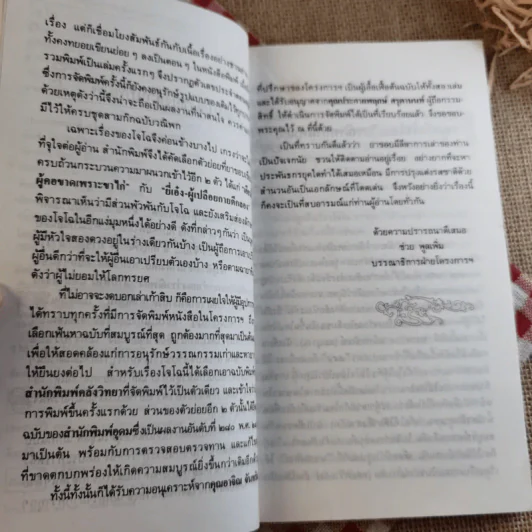 เรื่อง แต่ก็เชื่อมโยงสัมพันธ์กันกับเนื้อเรื่องอย่าง
ทั้งคงทยอยเขียนย่อย ๆ ลงเป็นตอน ๆ ในหนังสือพิมพ์
รวมพิมพ์เป็นเล่มครั้งแรกๆ จึงปรากฏตัวละครประจำ
ซึ่งการจัดพิมพ์ครั้งนี้ก็ยังคงอนุรักษ์รูปแบบของเดิมไว้
ด้วยเหตุดังว่านี้จึงน่าจะถือเป็นผลงานที่น่าสนใจ ควร
มีไว้ให้ครบชุดสามก๊กฉบับวณิพก
เฉพาะเรื่องของโจโฉจึงค่อนข้างบางไป เกรงว่าจะไม่
ที่จุใจต่อผู้อ่าน สำนักพิมพ์จึงได้คัดเลือกตัวย่อยที่
ครบถ้วนกระบวนความมาผนวกเข้าไว้อีก ๒ ตัว ได้แก่
ผู้คอขาดเพราะขาไก่" กับ "ยี่เอ๋ง-ผู้เปลือยกายตีกลอง
พิจารณาเห็นว่ามีส่วนพัวพันกับโจโฉ และยังเสริมส่อง
ของโจโฉในอีกแง่มุมหนึ่งได้อย่างดี ดังที่กล่าวๆกันว่า
ผู้มีหัวใจสองดวงอยู่ในร่างเดียวกันบ้าง เป็นผู้ถือการ
ผู้อื่นดีกว่าที่จะให้ผู้อื่นเอาเปรียบตัวเองบ้าง หรือตาม
ดังว่าผู้ไม่ยอมให้โลกทรยศ
ที่ไม่อาจจะงดบอกเล่าเก้าสิบ ก็คือการเผยใจให้ผู้
ได้ทราบทุกครั้งที่มีการจัดพิมพ์หนังสือในโครงการฯ
เลือกเฟ้นหาฉบับที่สมบูรณ์ที่สุด ถูกต้องมากที่สุดมาเป็น
เพื่อให้สอดคล้องแก่การอนุรักษ์วรรณกรรมเก่าและ
ให้ยืนยงต่อไป สำหรับเรื่องโจโฉนี้ได้เลือกเอาฉบับพิมพ์
สำนักพิมพ์คลังวิทยาที่จัดพิมพ์ไว้เป็นตัวเดียว และเข้าใจ
การพิมพ์ขึ้นครั้งแรกด้วย ส่วนของตัวย่อยอีก ๒ ตัวนั้นได้
ฉบับของสำนักพิมพ์อุดมซึ่งเป็นผลงานอันดับที่ ๒๘๐ พ.ศ.
มาเป็นต้น พร้อมกับการตรวจสอบตรวจทาน และแก้ไข
ที่ขาดตกบกพร่องให้เกิดความสมบูรณ์ยิ่งขึ้นกว่าเดิม
ทั้งนี้ทั้งนั้นก็ได้รับความอนุเคราะห์จากคุณอาจิณ จันทรัมพร
ที่ปรึกษาของโครงการฯ เป็นผู้เอื้อเฟื้อต้นฉบับให้ทั้งสองเล่ม
และได้รับอนุญาตจากคุณประกายพฤกษ์ สรุตานนท์ ผู้ถือกรรม
สิทธิ์ ให้ดำเนินการจัดพิมพ์ได้เป็นที่เรียบร้อยแล้ว จึงขอขอบ
พระคุณไว้ ณ ที่นี้ด้วย
เป็นที่ทราบกันดีแล้วว่า อาชอบมีลีลาการเล่าของท่าน
เป็นปัจเจกนัย ชวนให้ติดตามอ่านอยู่เรื่อย อย่างยากที่จะหา
ประพันธกรยุคใดทำได้เสมอเหมือน มีการปรุงแต่งรสชาติด้วย
สำนวนอันเป็นเอกลักษณ์ที่โดดเด่น จึงหวังอย่างยิ่งว่าเรื่องนี้
ก็คงจะเป็นที่สบอารมณ์แก่ท่านผู้อ่านโดยทั่วกัน
ด้วยความปรารถนาดีเสมอ
ช่วย พูลเพิ่ม
บรรณาธิการฝ่ายโครงการฯ